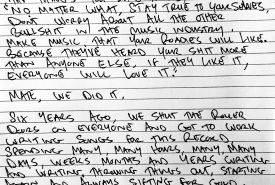 "NO MATTER WHAT, STAY TRUE TO YOURSELVES,
DON'T WORRY ABOUT ALL THE OTHER
BULLSHIT IN THE MUSIC INDUSTRY.
MAKE MUSIC THAT YOUR ROADIES WILL LIKE.
BECAUSE THEY'VE HEARD YOUR SHIT MORE
THAN ANYONE ELSE, IF THEY LIKE IT,
EVERYONE WILL LOVE IT."
MATE, WE DID IT.
SIX YEARS AGO, WE SHUT THE ROLLER
DOORS ON EVERYONE AND GOT TO WORK
WRITING SONGS FOR THIS RECORD.
SPENDING MANY, MANY HOURS, MANY, MANY
DAYS, WEEKS MONTHS AND YEARS WRITING
AND WRITING, THROWING THINGS OUT, STARTING
AGAIN AND ALWAYS SIFTING FOR GOLD.